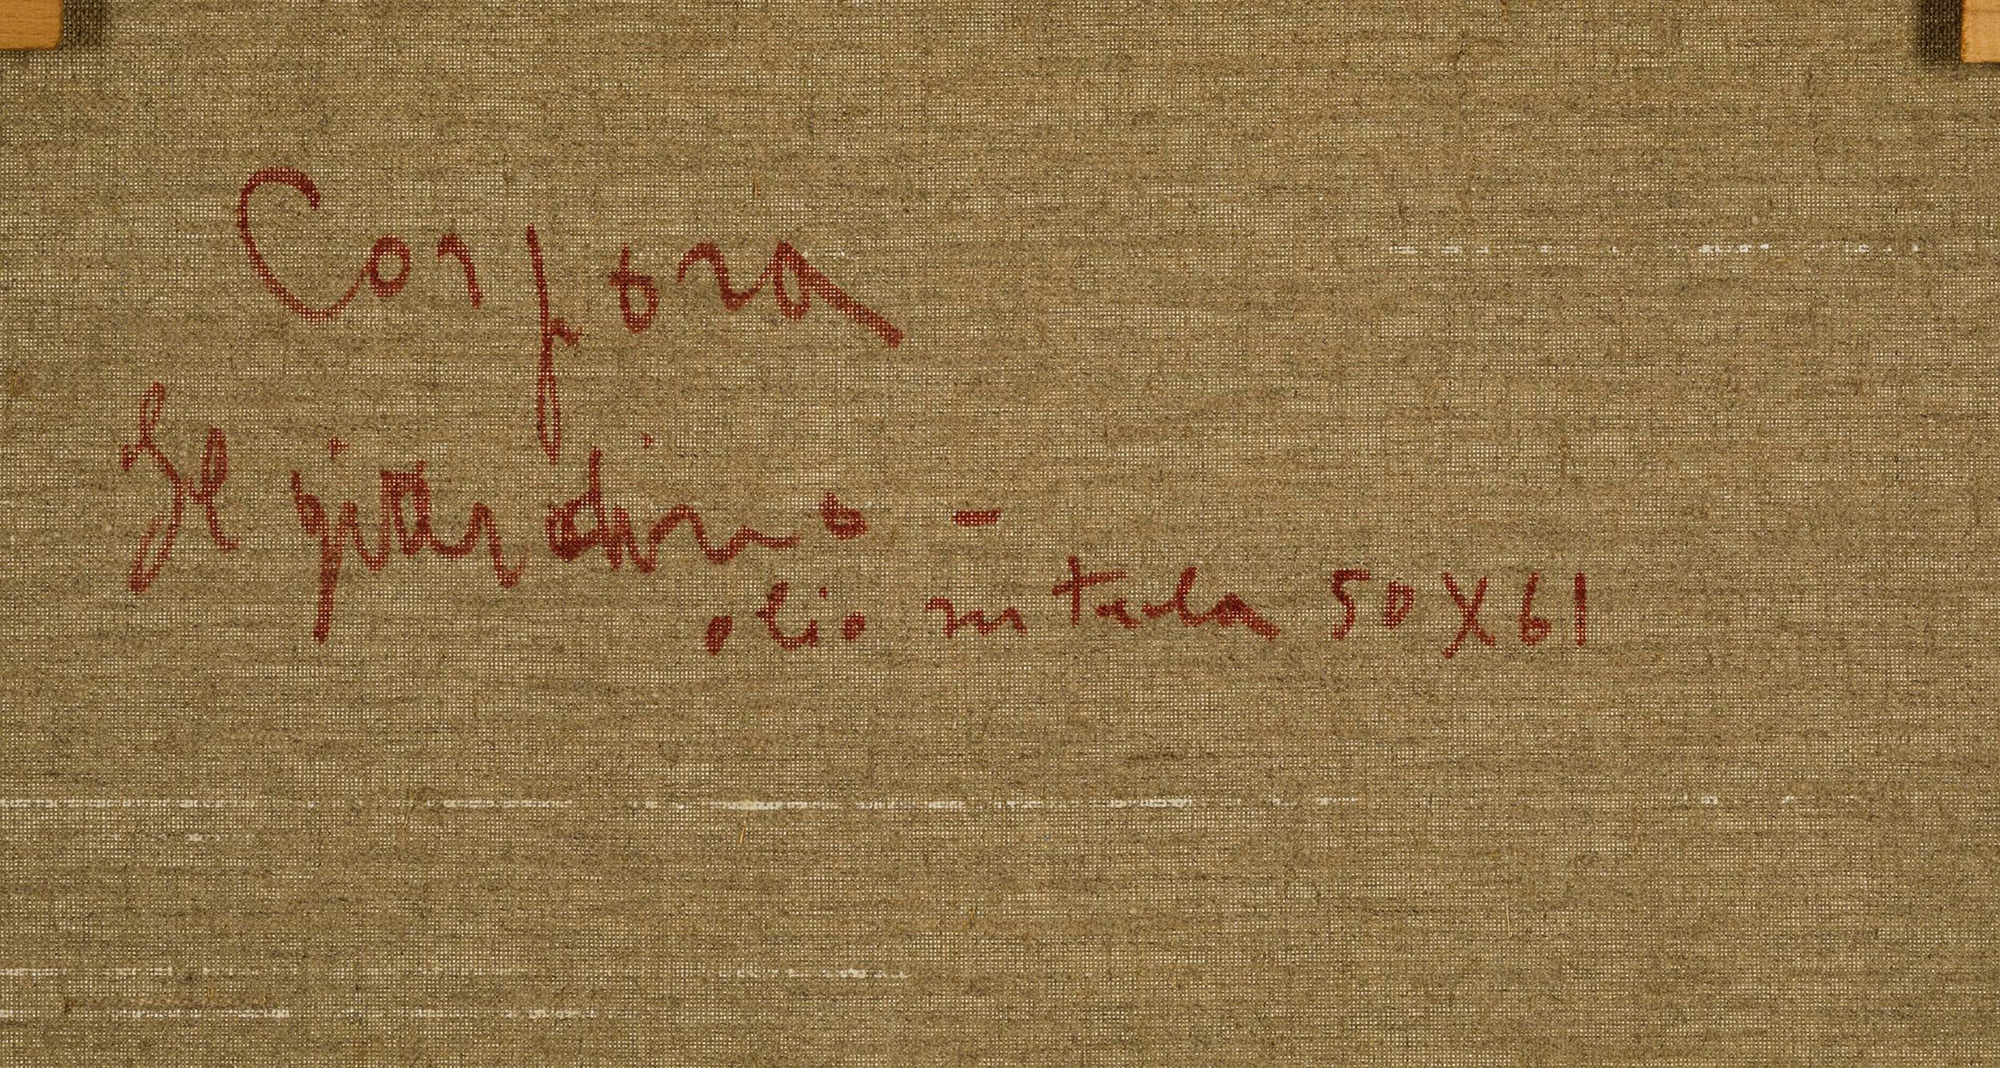 Corpora
Il giardino -
olio su tela 50X61